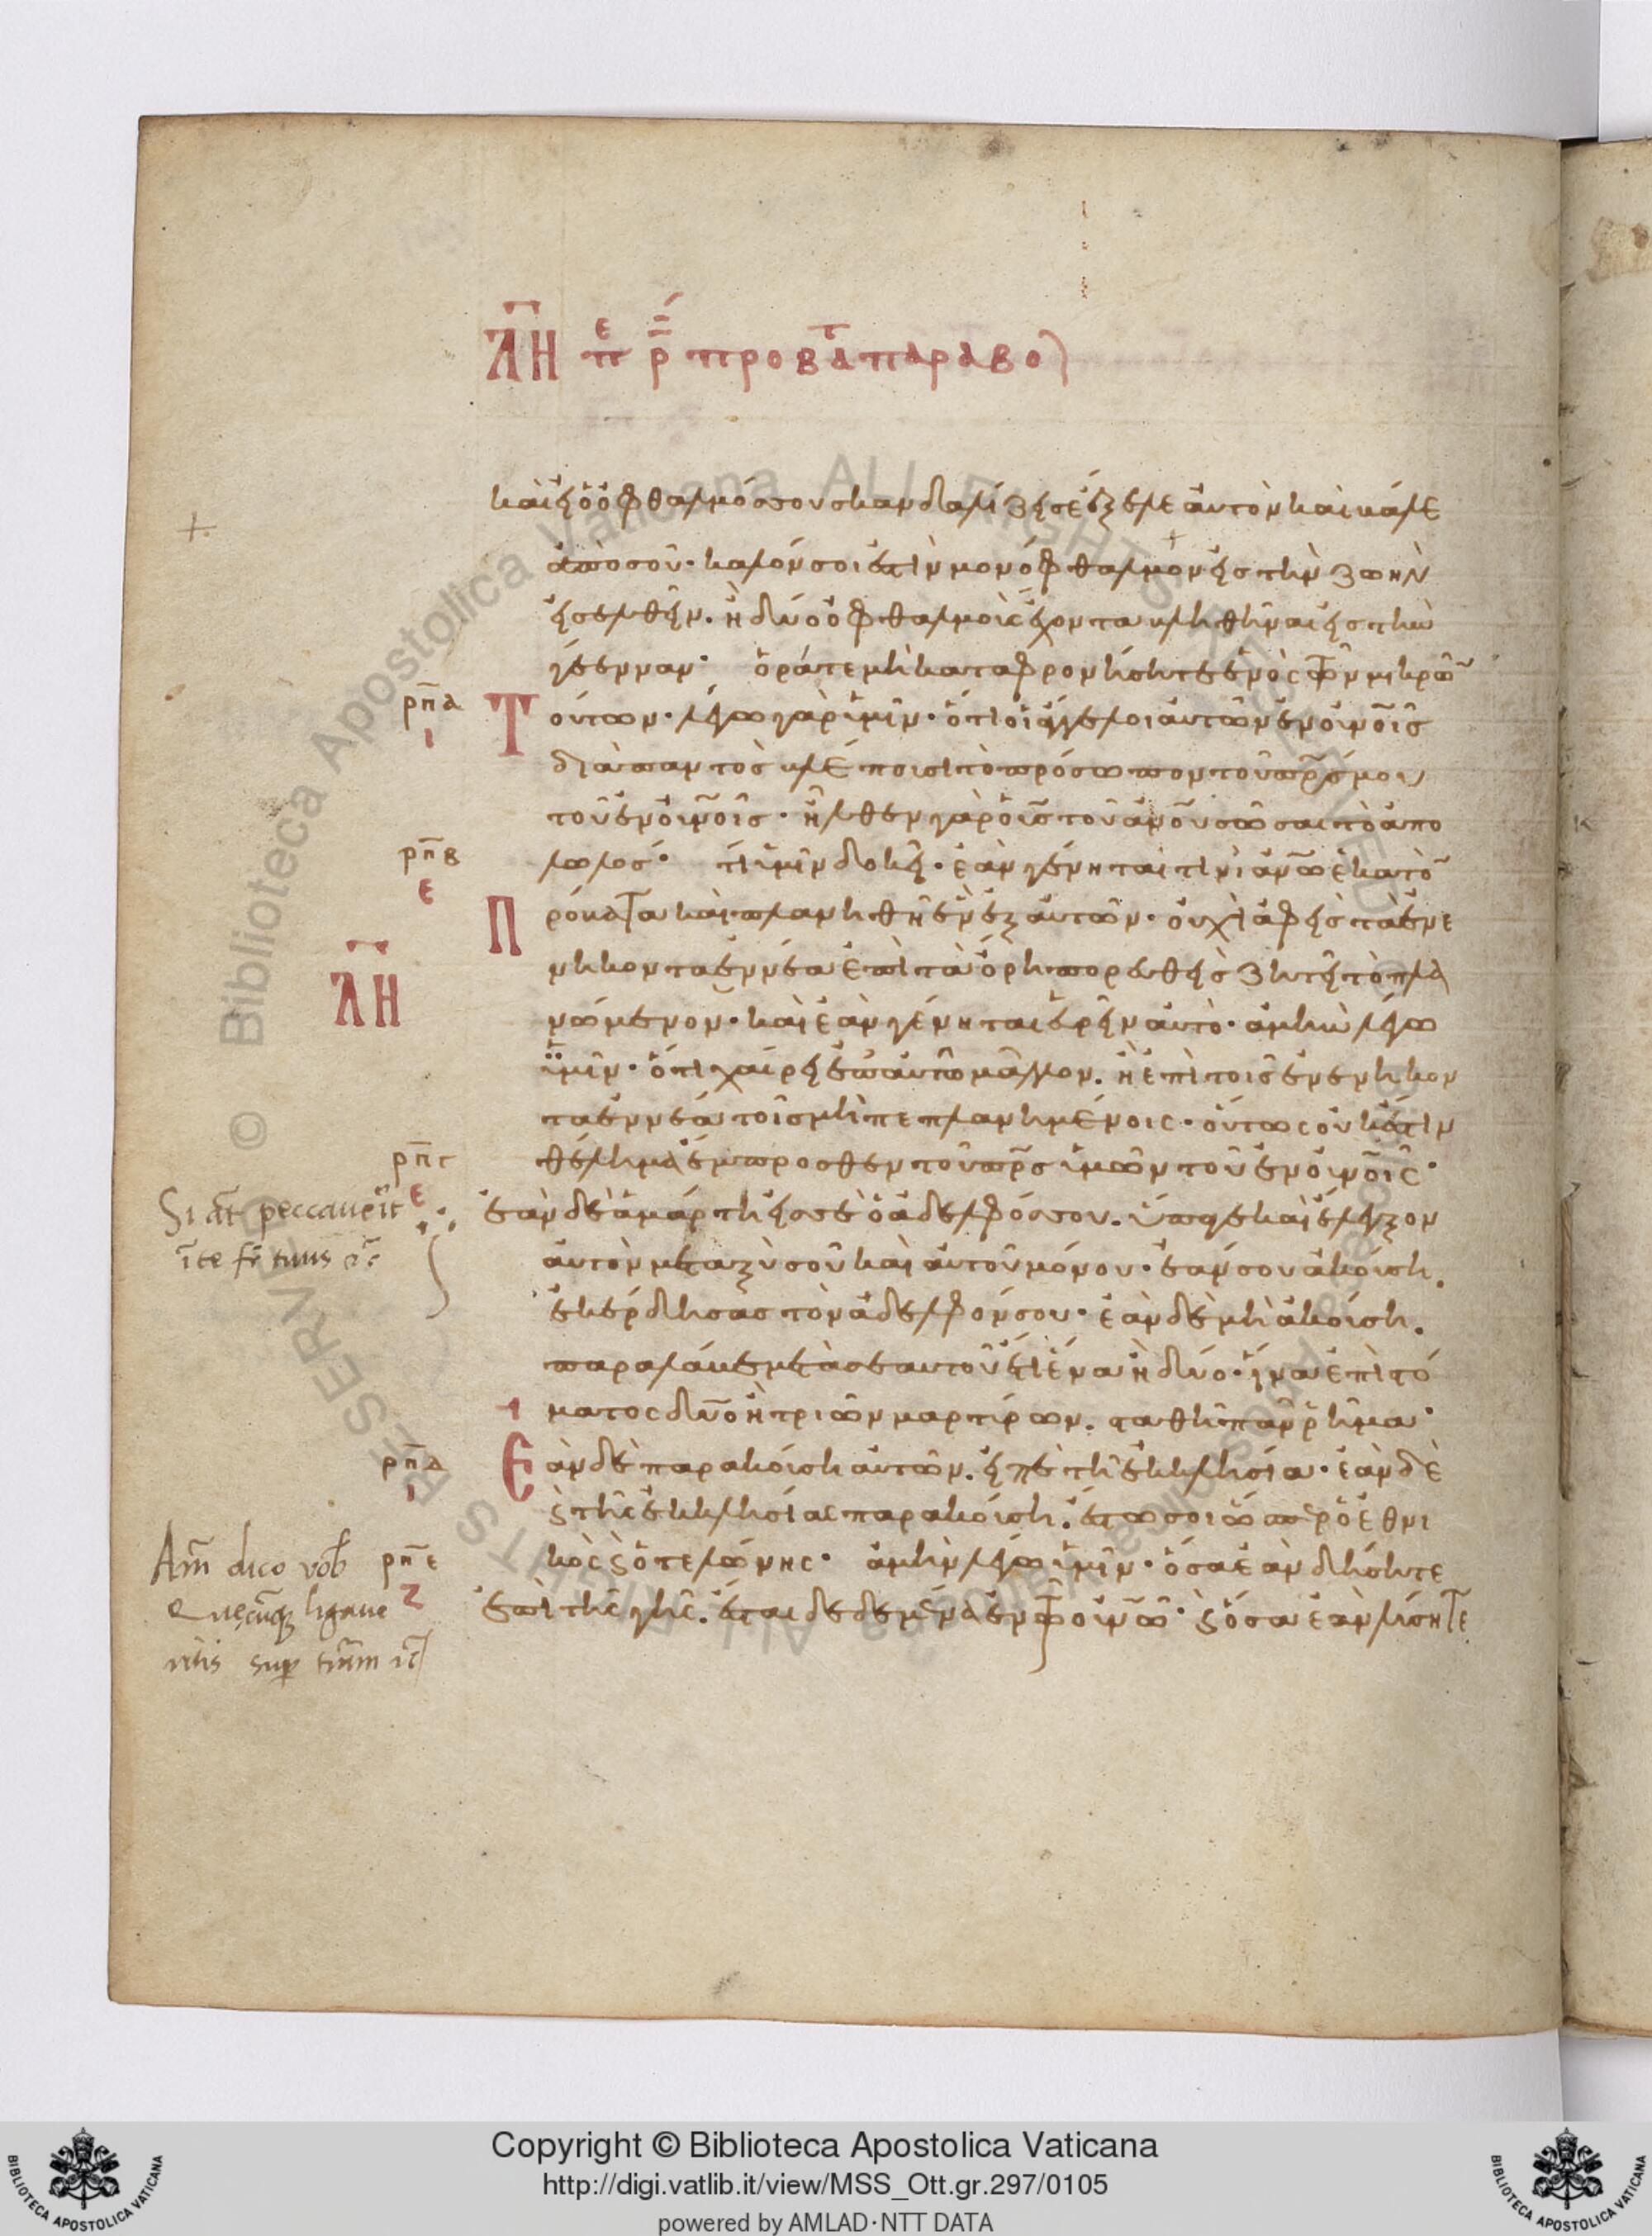 λη πε ρ προβτα παραβο
καὶ εἰ ὁ ὀφθαλμόσ σου σκανδαλίζει σε ἔξελε αὐτὸν καὶ βάλε
ἀπὸ σοῦ· καλόν σοι ἐστὶν μονόφθαλμον εἰσ τὴν ζωὴν
εἰσελθεῖν. ἢ δύο ὀφθαλμοὺς ἔχοντα βληθῆναι εἰσ τὴν
γέενναν· ὁρᾶτε μὴ καταφρονήσητε ἑνὸς τῶν μικρῶν
ρπα
ι
Τούτων· λέγω γὰρ ὑμῖν· ὅτι οἱ ἄγγελοι αὐτῶν ἐν οὐνοῖσ
διὰ παντὸσ βλέπουσι τὸ πρόσωπον τοῦ πρσ μου
τοῦ ἐν οὐνοῖσ· ἦλθεν γὰρ ὁ υσ τοῦ ανου σῶσαι τὸ ἀπο
ρπβ
ε
λωλοσ· τί ὑμῖν δοκεῖ· ἐὰν γένηται τινὶ ανω ἑκατὸν
Πρόβατα καὶ πλανηθῆ ἓν ἐξ αὐτῶν· οὐχὶ ἀφεὶσ τὰ ἐνε
νηκονταεννέα ἐπὶ τὰ ὄρη πορευθεὶσ ζητεῖ τὸ πλα
λη
νώμενον· καὶ ἐὰν γένηται εὑρεῖν αὐτὸ· ἀμὴν λέγω
ὑμῖν· ὅτι χαίρει ἐπ αὐτῶ μᾶλλον. ἢ ἐπὶ τοῖσ ἐνενηκον
ταεννέα τοῖσ μὴ πεπλανημένοις· οὕτως οὐκ ἔστιν
ρπγ
ε
θέλημα ἔμπροσθεν τοῦ πρσ ὑμῶν τοῦ ἐν οὐνοῖς·
Si aut peccaverit
in te fr tuus
ἐὰν δὲ ἁμάρτη εἰσ σὲ ὁ ἀδελφόσ σου. ὕπαγε καὶ ἔλεγξον
αὐτὸν μεταξὺ σοῦ καὶ αὐτοῦ μόνου· ἐάν σου ἀκούση.
ἐκέρδησασ τὸν ἀδελφόν σου· ἐὰν δὲ μὴ ἀκούση.
παράλαβε μετὰ σεαυτοῦ ἔτι ἕνα ἢ δύο· ἵνα ἐπὶ στό
ματος δύο ἢ τριῶν μαρτύρων. σταθῆ πᾶν ῥῆμα·
ρπδ
ι
Ἐὰν δὲ παρακούση αὐτῶν. εἰπὲ τῆ ἐκκλησία· ἐὰν δὲ
ϗ τῆς ἐκκλησίας παρακούση. ἔστω σοι ὥσπερ ὁ ἐθνι
κὸς ϗ ὁ τελώνης· ἀμὴν λέγω ὑμῖν· ὅσα ἐὰν δήσητε
ρπε
ζ
Am dico vob
Quecunq ligave
ritis sup terram
ἐπὶ τῆς γῆς. ἔσται δεδεμένα ἐν τῶ οὐνω· ϗ ὅσα ἐὰν λύσητε
Copyright © Biblioteca Apostolica Vaticana
http://digi.vatlib.it/view/MSS_Ott.gr.297/0105
powered by AMLAD·NTT DATA
BIBLIOTECA APOSTOLICA VATICANA
BIBLIOTECA APOSTOLICA VATICANA